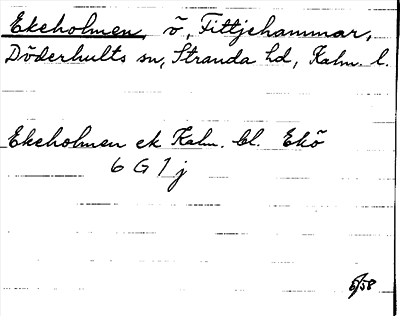 Ekeholmen, ö, Fittjehammar,
Döderhults sn, Stranda hd, Kalm. l.
Ekeholmen ek Kalm. bl. Ekö
6 G 1 j
5/58